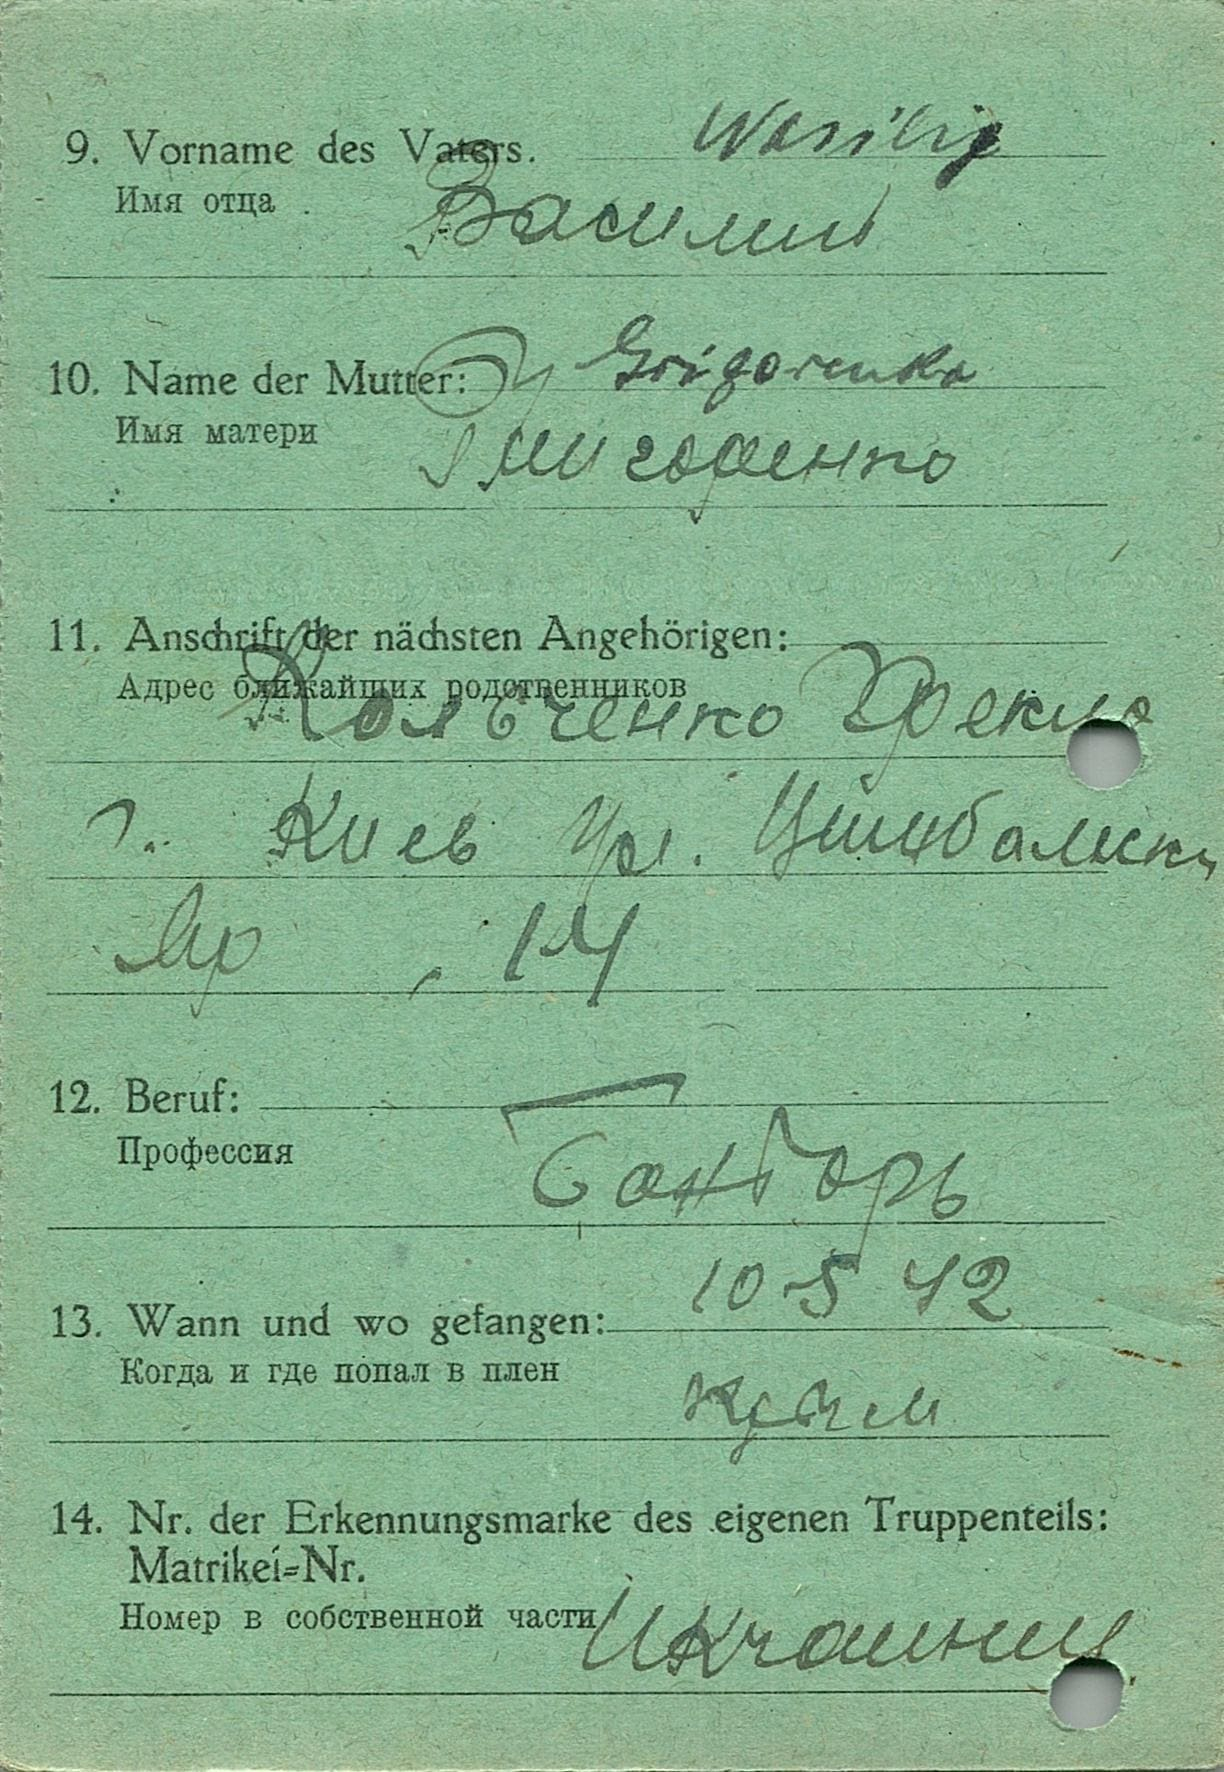 9. Vorname des Vaters. Wasilij
Имя отца Василий
10. Name der Mutter: Grigorenko
Имя матери Григоренко
11. Anschrift der nächsten Angehörigen:
Адрес ближайших родственников
Кольченко Фекла
г. Киев ул. Цимбалин
Яр 14
12. Beruf:
Профессия
13. Wann und wo gefangen: 10 5 42
Когда и где попал в плен
Крым
14. Nr. der Erkennungsmarke des eigenen Truppenteils:
Matrikel=Nr.
Номер в собственной части